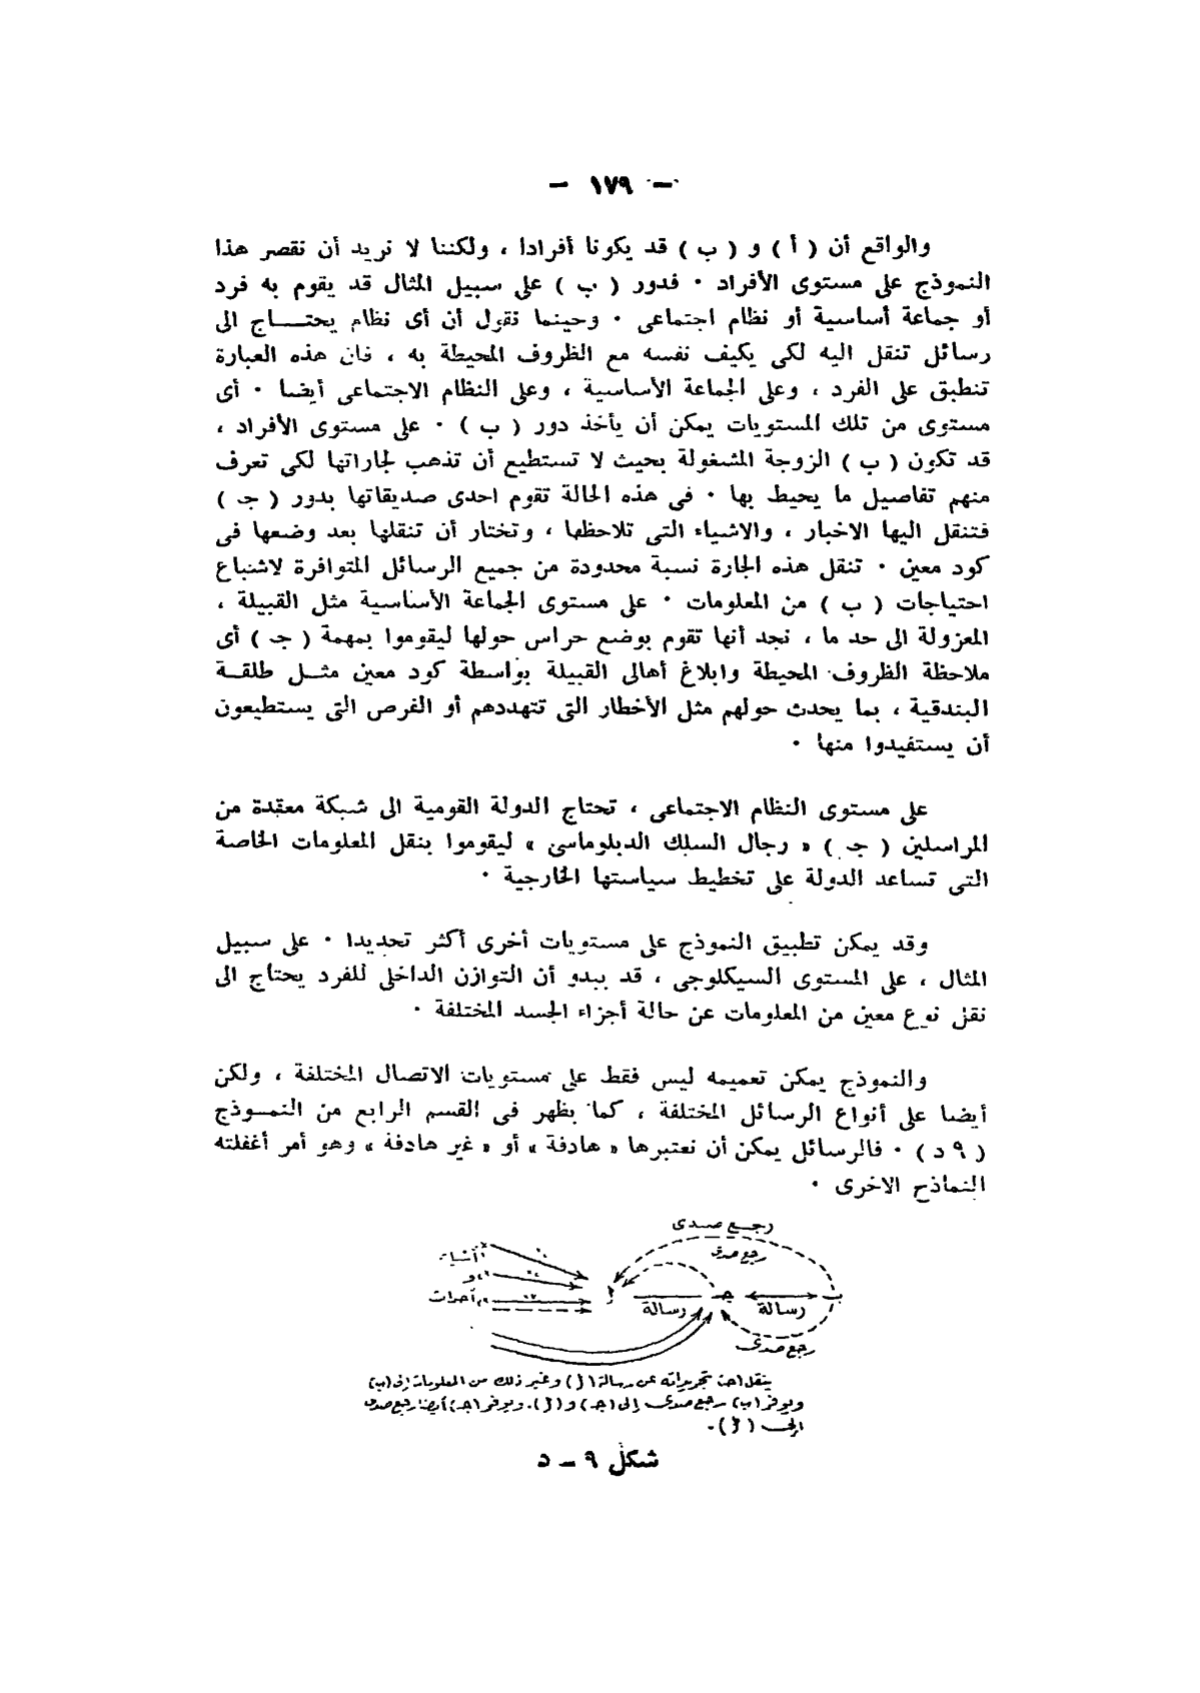 — ١٧٩ —
والواقع أن ( أ ) و ( ب ) قد يكونا أفرادا ، ولكننا لا نريد أن نقصر هذا
النموذج على مستوى الأفراد ٠ فدور ( ب ) على سبيل المثال قد يقوم به فرد
أو جماعة أساسية أو نظام اجتماعى ٠ وحينما نقول أن أى نظام يحتـــاج الى
رسائل تنقل اليه لكى يكيف نفسه مع الظروف المحيطة به ، فان هذه العبارة
تنطبق على الفرد ، وعلى الجماعة الأساسية ، وعلى النظام الاجتماعى أيضا ٠ أى
مستوى من تلك المستويات يمكن أن يأخذ دور ( ب ) ٠ على مستوى الأفراد ،
قد تكون ( ب ) الزوجة المشغولة بحيث لا تستطيع أن تذهب لجاراتها لكى تعرف
منهم تفاصيل ما يحيط بها ٠ فى هذه الحالة تقوم احدى صديقاتها بدور ( جـ )
فتنقل اليها الاخبار ، والاشياء التى تلاحظها ، وتختار أن تنقلها بعد وضعها فى
كود معين ٠ تنقل هذه الجارة نسبة محدودة من جميع الرسائل المتوافرة لاشباع
احتياجات ( ب ) من المعلومات ٠ على مستوى الجماعة الأساسية مثل القبيلة ،
المعزولة الى حد ما ، نجد أنها تقوم بوضع حراس حولها ليقوموا بمهمة ( جـ ) أى
ملاحظة الظروف المحيطة وابلاغ أهالى القبيلة بواسطة كود معين مثــل طلقــة
البندقية ، بما يحدث حولهم مثل الأخطار التى تتهددهم أو الفرص التى يستطيعون
أن يستفيدوا منها ٠
على مستوى النظام الاجتماعى ، تحتاج الدولة القومية الى شبكة معقدة من
المراسلين ( جـ ) « رجال السلك الدبلوماسى » ليقوموا بنقل المعلومات الخاصة
التى تساعد الدولة على تخطيط سياستها الخارجية ٠
وقد يمكن تطبيق النموذج على مستويات أخرى أكثر تحديدا ٠ على سبيل
المثال ، على المستوى السيكلوجى ، قد يبدو أن التوازن الداخلى للفرد يحتاج الى
نقل نوع معين من المعلومات عن حالة أجزاء الجسد المختلفة ٠
والنموذج يمكن تعميمه ليس فقط على مستويات الاتصال المختلفة ، ولكن
أيضا على أنواع الرسائل المختلفة ، كما يظهر فى القسم الرابع من النمــوذج
( ٩ د ) ٠ فالرسائل يمكن أن نعتبرها « هادفة » أو « غير هادفة » وهو أمر أغفلته
النماذج الاخرى ٠
رجـع صـدى
رجع صدى
أشياء
و
أ
رسالة
جـ
رسالة
ب
أحداث
رجع صدى
ينقل (جـ) تجريداته عن رسالة (أ) وغير ذلك من المعلومات إلى (ب)
ويوفر (ب) رجع صدى إلى (جـ) و (أ). ويوفر (جـ) أيضا رجع صدى
إلى (أ).
شكل ٩ — د